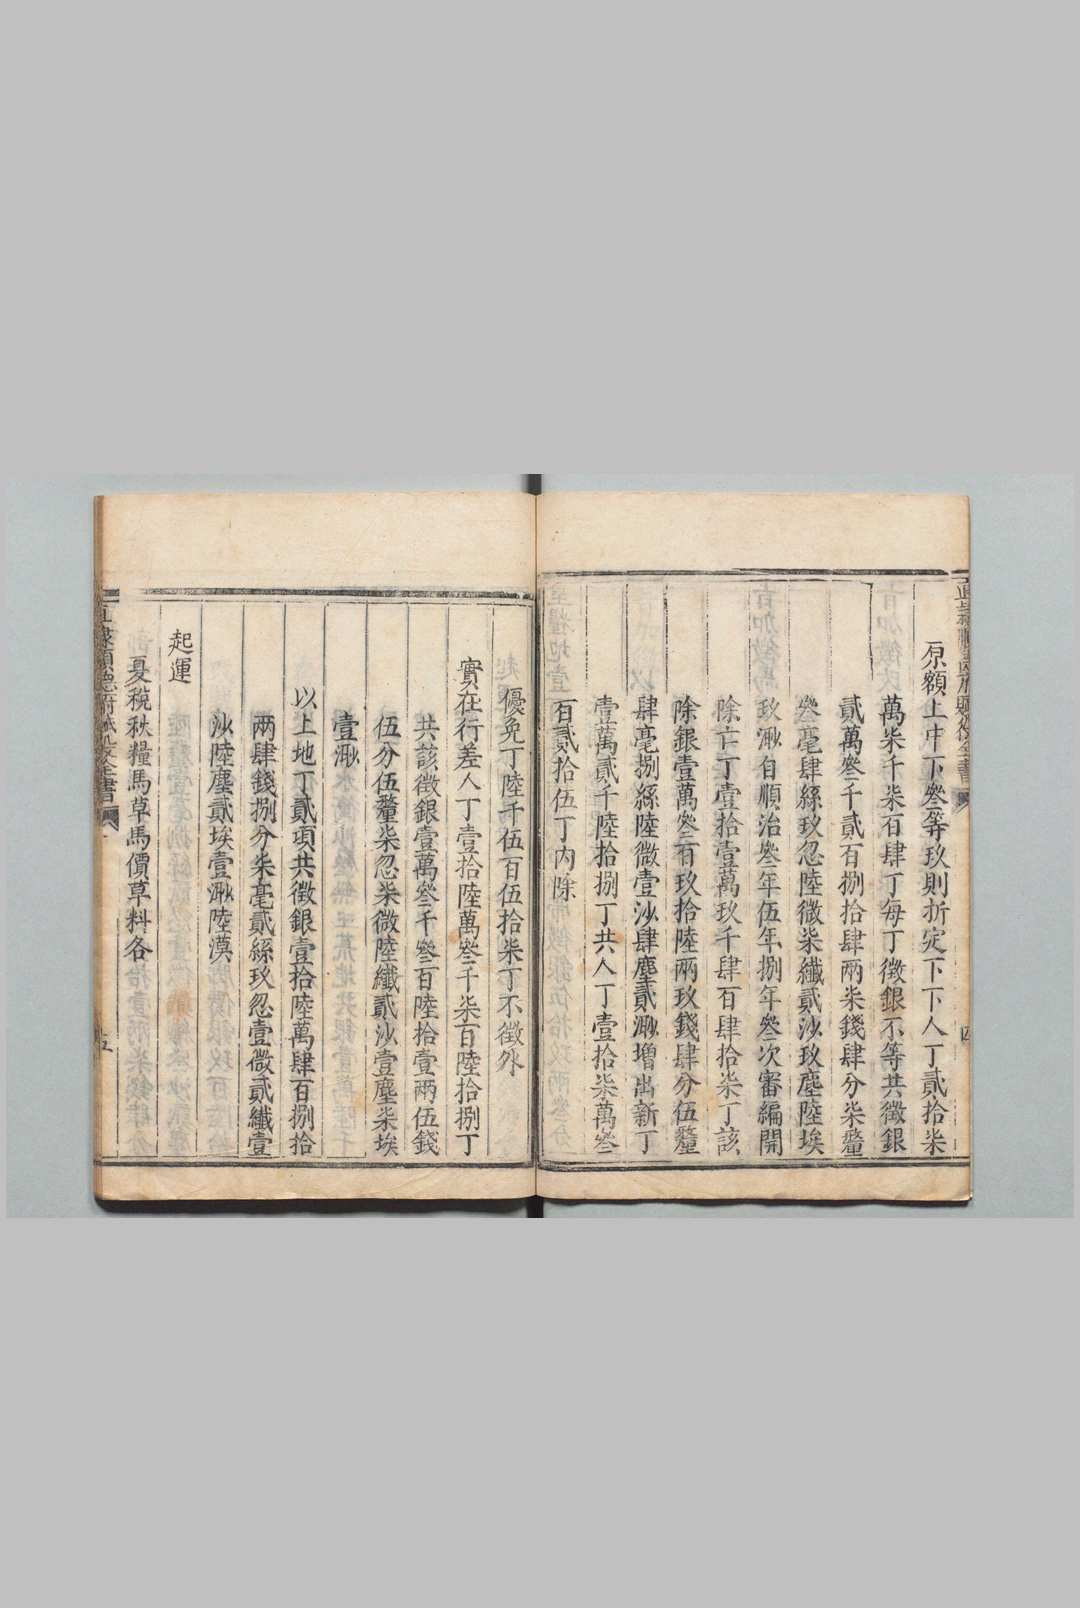 原額上中下叄等玖則折定下下人丁貳拾柒
萬柒千柒百肆丁每丁徵銀不等共徵銀
貳萬叄千貳百捌拾肆兩柒錢肆分柒釐
叄毫肆絲玖忽陸微柒纖貳沙玖塵陸埃
玖渺自順治叄年伍年捌年叄次審編開
除亡丁壹拾壹萬玖千肆百肆拾柒丁該
除銀壹萬叄百玖拾陸兩玖錢肆分伍釐
肆毫捌絲陸微壹沙肆塵貳渺增出新丁
壹萬貳千陸拾捌丁共人丁壹拾柒萬叄
百貳拾伍丁內除
優免丁陸千伍百伍拾柒丁不徵外
實在行差人丁壹拾陸萬叄千柒百陸拾捌丁
共該徵銀壹萬叄千叄百陸拾壹兩伍錢
伍分伍釐柒忽柒微陸纖貳沙壹塵柒埃
壹渺
以上地丁貳項共徵銀壹拾陸萬肆百捌拾
兩肆錢捌分柒毫貳絲玖忽壹微貳纖壹
沙陸塵貳埃壹渺陸漠
起運
夏稅秋糧馬草馬價草料各
直隸順德府賦役全書
五